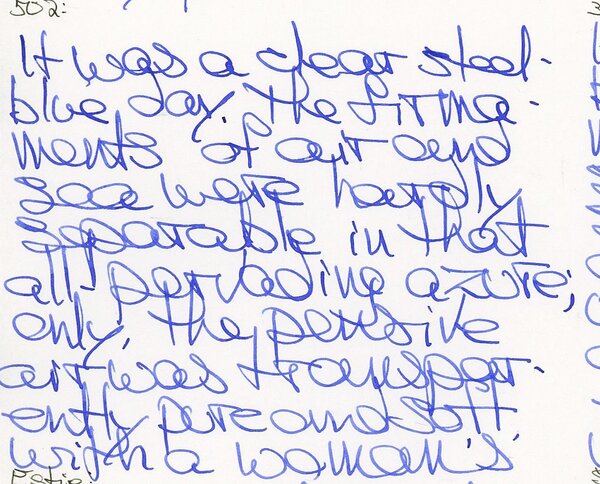 502:
It was a clear steel-
blue day. The firma-
ments of air and
sea were hardly
separable in that
all-pervading azure;
only, the pensive
air was transpar-
ently pure and soft
with a woman's